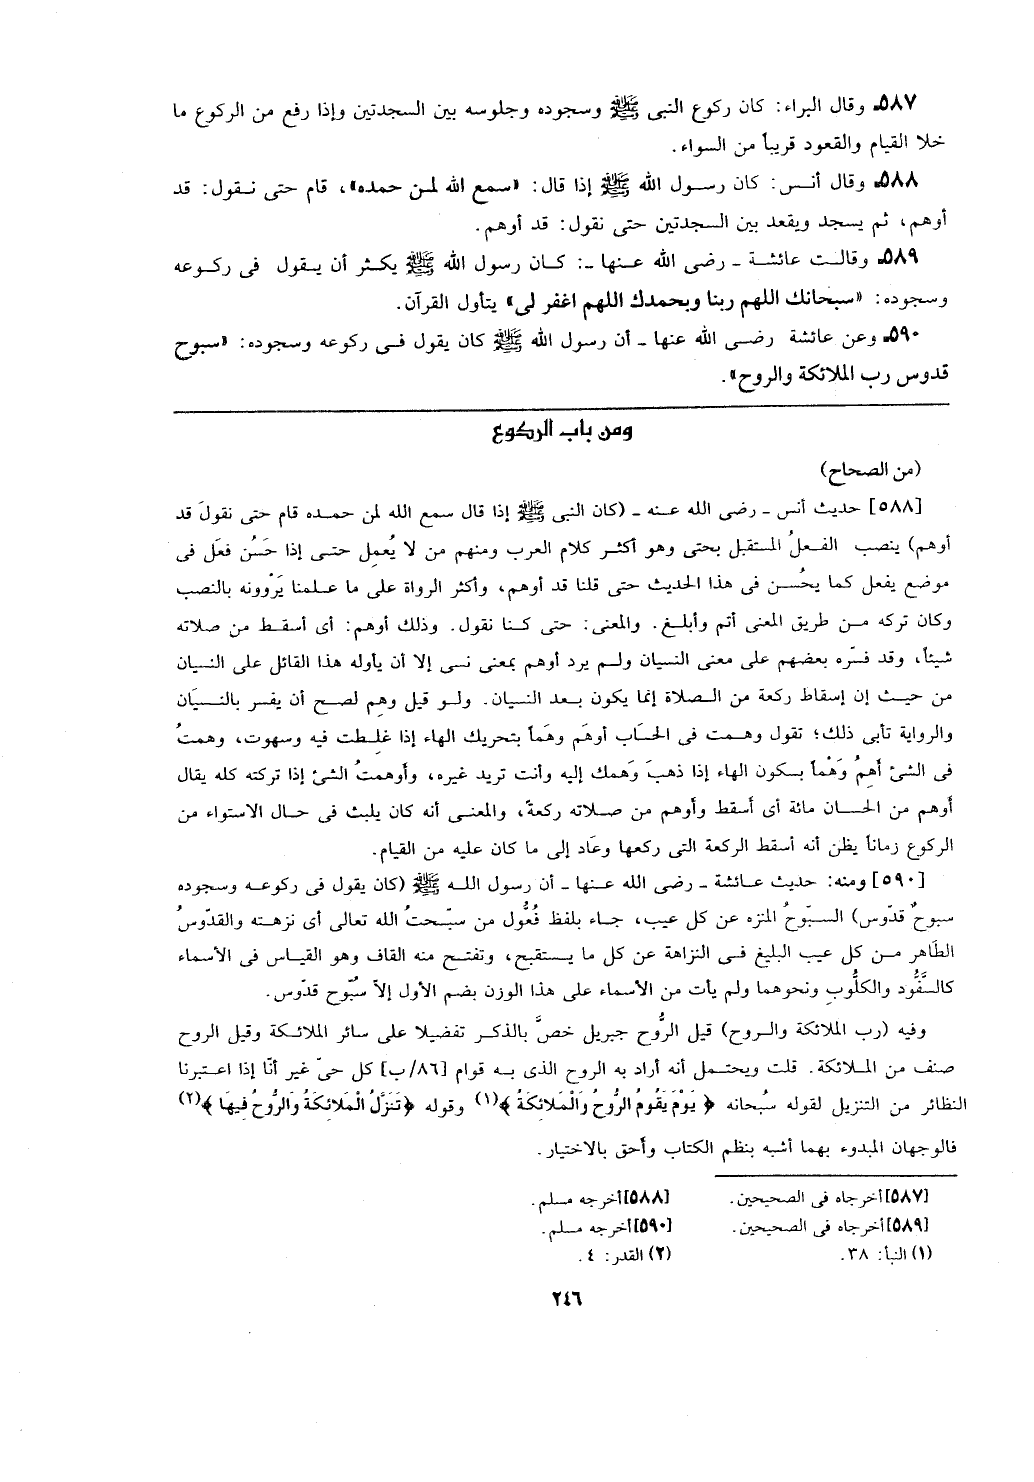 ٥٨٧ـ وقال البراء: كان ركوع النبى ﷺ وسجوده وجلوسه بين السجدتين وإذا رفع من الركوع ما
خلا القيام والقعود قريباً من السواء.
٥٨٨ـ وقال أنس: كان رسول الله ﷺ إذا قال: «سمع الله لمن حمده»، قام حتى نقول: قد
أوهم، ثم يسجد ويقعد بين السجدتين حتى نقول: قد أوهم.
٥٨٩ـ وقالت عائشة ـ رضى الله عنها ـ: كان رسول الله ﷺ يكثر أن يقول فى ركوعه
وسجوده: «سبحانك اللهم ربنا وبحمدك اللهم اغفر لى» يتأول القرآن.
٥٩٠ـ وعن عائشة رضى الله عنها ـ أن رسول الله ﷺ كان يقول فى ركوعه وسجوده: «سبوح
قدوس رب الملائكة والروح».
ومن باب الركوع
(من الصحاح)
[٥٨٨] حديث أنس ـ رضى الله عنه ـ (كان النبى ﷺ إذا قال سمع الله لمن حمده قام حتى نقولَ قد
أوهم) ينصب الفعلُ المستقبل بحتى وهو أكثر كلام العرب ومنهم من لا يُعمِل حتى إذا حَسُن فعَل فى
موضع يفعل كما يحُسن فى هذا الحديث حتى قلنا قد أوهم، وأكثر الرواة على ما علمنا يَرْوونه بالنصب
وكان تركه من طريق المعنى أتم وأبلغ. والمعنى: حتى كنا نقول. وذلك أوهم: أى أسقط من صلاته
شيئاً، وقد فسّره بعضهم على معنى النسيان ولم يرد أوهم بمعنى نسى إلا أن يأوله هذا القائل على النسيان
من حيث إن إسقاط ركعة من الصلاة إنما يكون بعد النسيان. ولو قيل وهِم لصح أن يفسر بالنسيَان
والرواية تأبى ذلك؛ تقول وهمت فى الحسَاب أوهَم وهَماً بتحريك الهاء إذا غلطت فيه وسهوت، وهمتُ
فى الشئ أهِمُ وَهْماً بسكون الهاء إذا ذهبَ وَهمك إليه وأنت تريد غيره، وأوهمتُ الشئ إذا تركته كله يقال
أوهم من الحسان مائة أى أسقط وأوهم من صلاته ركعة، والمعنى أنه كان يلبث فى حال الاستواء من
الركوع زماناً يظن أنه أسقط الركعة التى ركعها وعَاد إلى ما كان عليه من القيام.
[٥٩٠] ومنه: حديث عائشة ـ رضى الله عنها ـ أن رسول الله ﷺ (كان يقول فى ركوعه وسجوده
سبوحٌ قدّوس) السبّوحُ المنزه عن كل عيب، جاء بلفظ فُعُّول من سبّحتُ الله تعالى أى نزهته والقدّوسُ
الطَاهر من كل عيب البليغ فى النزاهة عن كل ما يستقبح، وتفتح منه القاف وهو القياس فى الأسماء
كالسَّفُّود والكلُّوب ونحوهما ولم يأت من الأسماء على هذا الوزن بضم الأول إلاّ سبُّوح قدّوس.
وفيه (رب الملائكة والروح) قيل الرُّوح جبريل خصَّ بالذكر تفضيلا على سائر الملائكة وقيل الروح
صنف من الملائكة. قلت ويحتمل أنه أراد به الروح الذى به قوام [٨٦/ب] كل حىّ غير أنّا إذا اعتبرنا
النظائر من التنزيل لقوله سُبحانه ﴿ يَوْمَ يَقُومُ الرُّوحُ وَالْمَلائِكَةُ ﴾(١) وقوله ﴿تَنَزَّلُ الْمَلائِكَةُ وَالرُّوحُ فِيهَا ﴾(٢)
فالوجهان المبدوء بهما أشبه بنظم الكتاب وأحق بالاختيار.
[٥٨٧] أخرجاه فى الصحيحين. [٥٨٨] أخرجه مسلم.
[٥٨٩] أخرجاه فى الصحيحين. [٥٩٠] أخرجه مسلم.
(١) النبأ: ٣٨. (٢) القدر: ٤.
٢٤٦